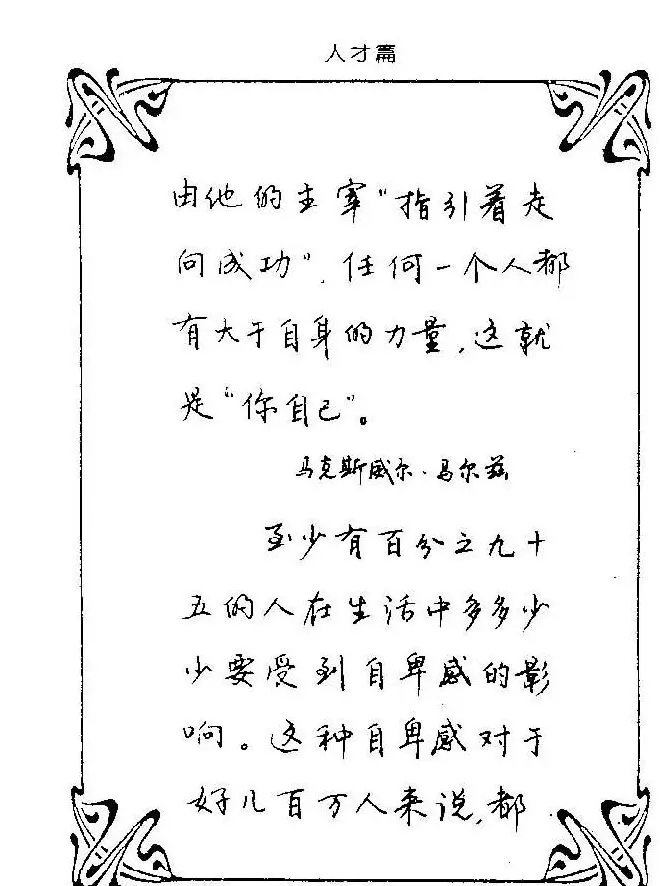 人才篇
由他的主宰“指引着走
向成功”，任何一个人都
有大于自身的力量，这就
是“你自己”。
马克斯威尔·马尔兹
至少有百分之九十
五的人在生活中多多少
少要受到自卑感的影
响。这种自卑感对于
好几百万人来说，都